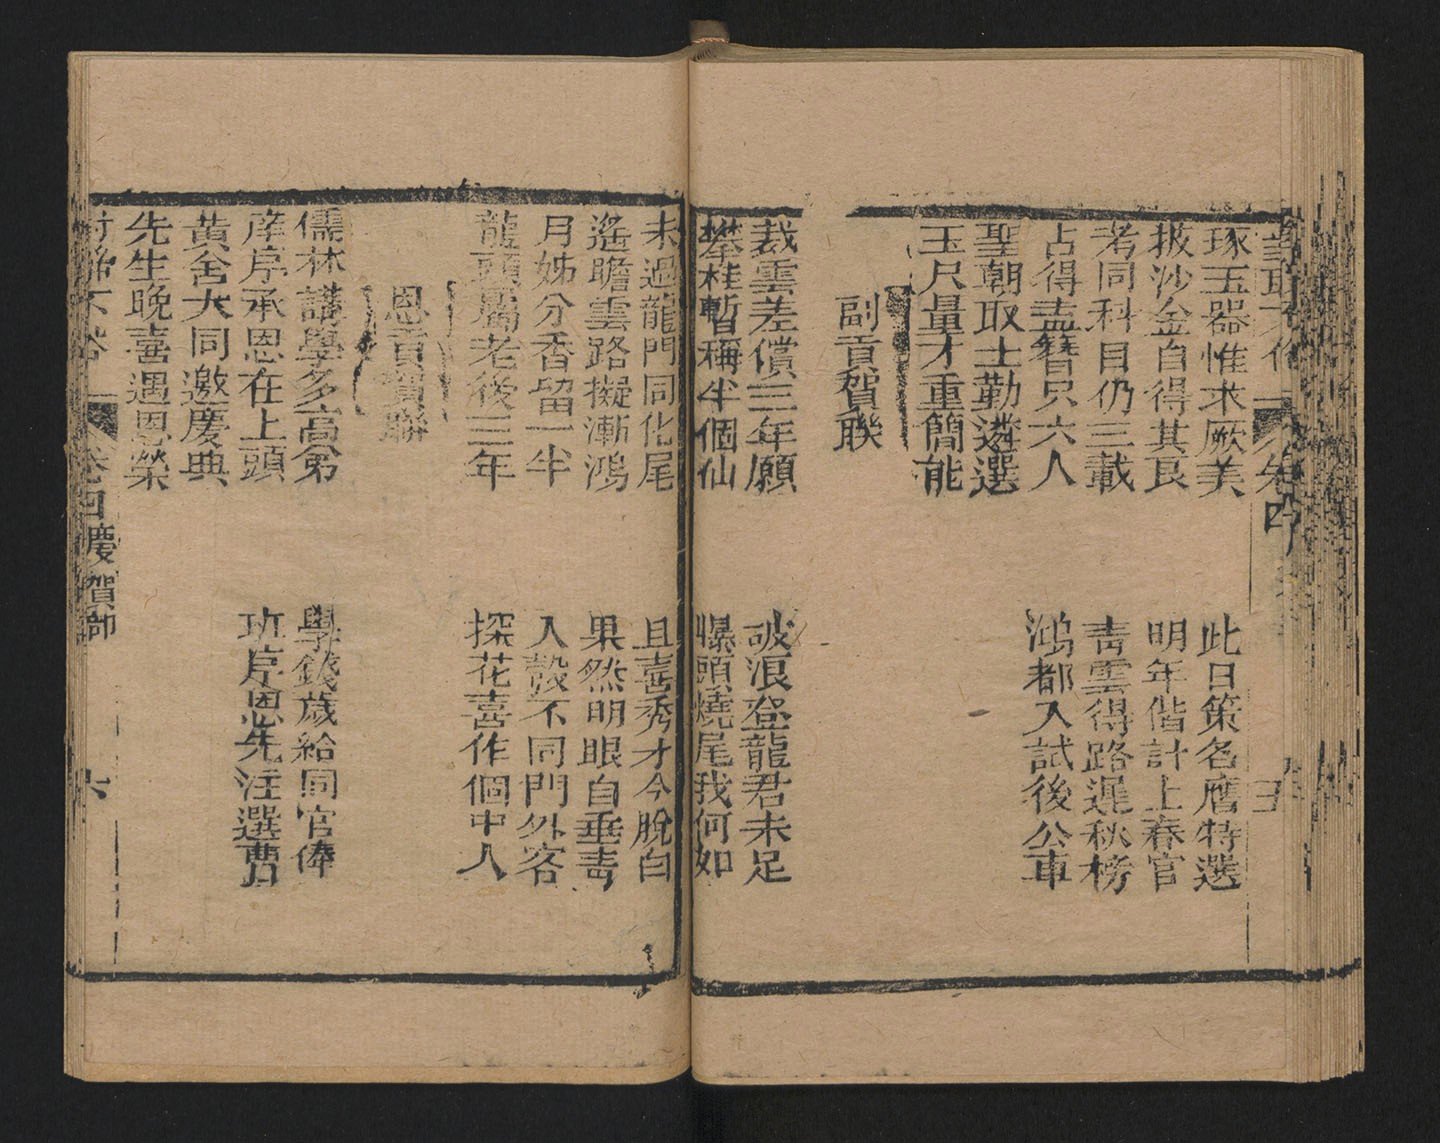 卷四
琢玉器惟求厥美
此日策名應特選
披沙金自得其良
明年偕計上春官
考同科目仍三載
青雲得路遲秋榜
占得盍簪只六人
鴻都入試後公車
聖朝取士勤遴選
玉尺量才重簡能
副貢賀聯
裁雲差償三年願
破浪登龍君未足
攀桂暫稱半個仙
曝頭燒尾我何如
未過龍門同化尾
且喜秀才今脫白
遙瞻雲路擬漸鴻
果然明眼自垂青
月姊分香留一半
入彀不同門外客
龍頭屬老後三年
探花喜作個中人
恩貢賀聯
儒林講學多高弟
學錢歲給同官俸
庠序承恩在上頭
班序恩先注選曹
黃舍大同邀慶典
先生晚喜遇恩榮
卷四慶賀部
六